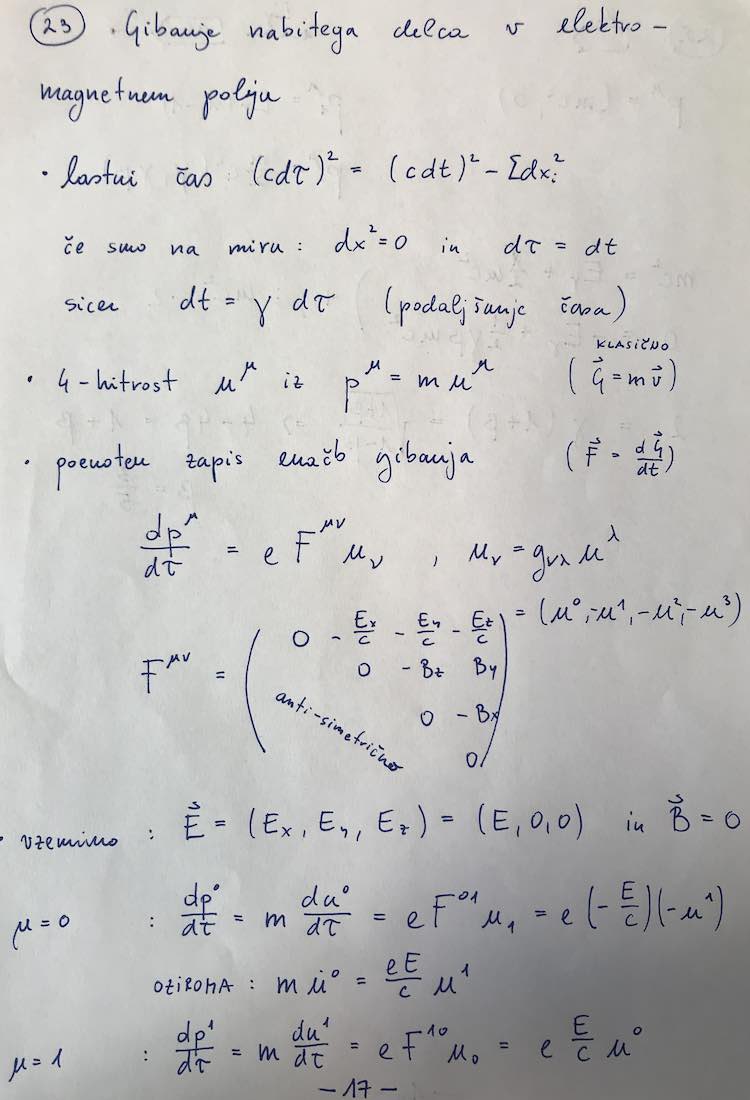 (23) . Gibanje nabitega delca v elektro-
magnetnem polju
• lastni čas (cdτ)² = (cdt)² - Σdxᵢ²
če smo na miru : dx² = 0 in dτ = dt
sicer dt = γ dτ (podaljšanje časa)
KLASIČNO
• 4-hitrost u^μ iz p^μ = m u^μ (G⃗ = m v⃗)
• poenoten zapis enačb gibanja (F⃗ = dG⃗/dt)
dp^μ/dτ = e F^μν u_ν , u_ν = g_νλ u^λ
= (u⁰, -u¹, -u², -u³)
F^μν = ( 0 - Ex/c - Ey/c - Ez/c
0 - Bz By
anti-simetrično 0 - Bx
0 )
• vzemimo : E⃗ = (Ex, Ey, Ez) = (E, 0, 0) in B⃗ = 0
μ = 0 : dp⁰/dτ = m du⁰/dτ = e F⁰¹ u₁ = e (- E/c)(-u¹)
OZIROMA : m u̇⁰ = eE/c u¹
μ = 1 : dp¹/dτ = m du¹/dτ = e F¹⁰ u₀ = e E/c u⁰
- 17 -